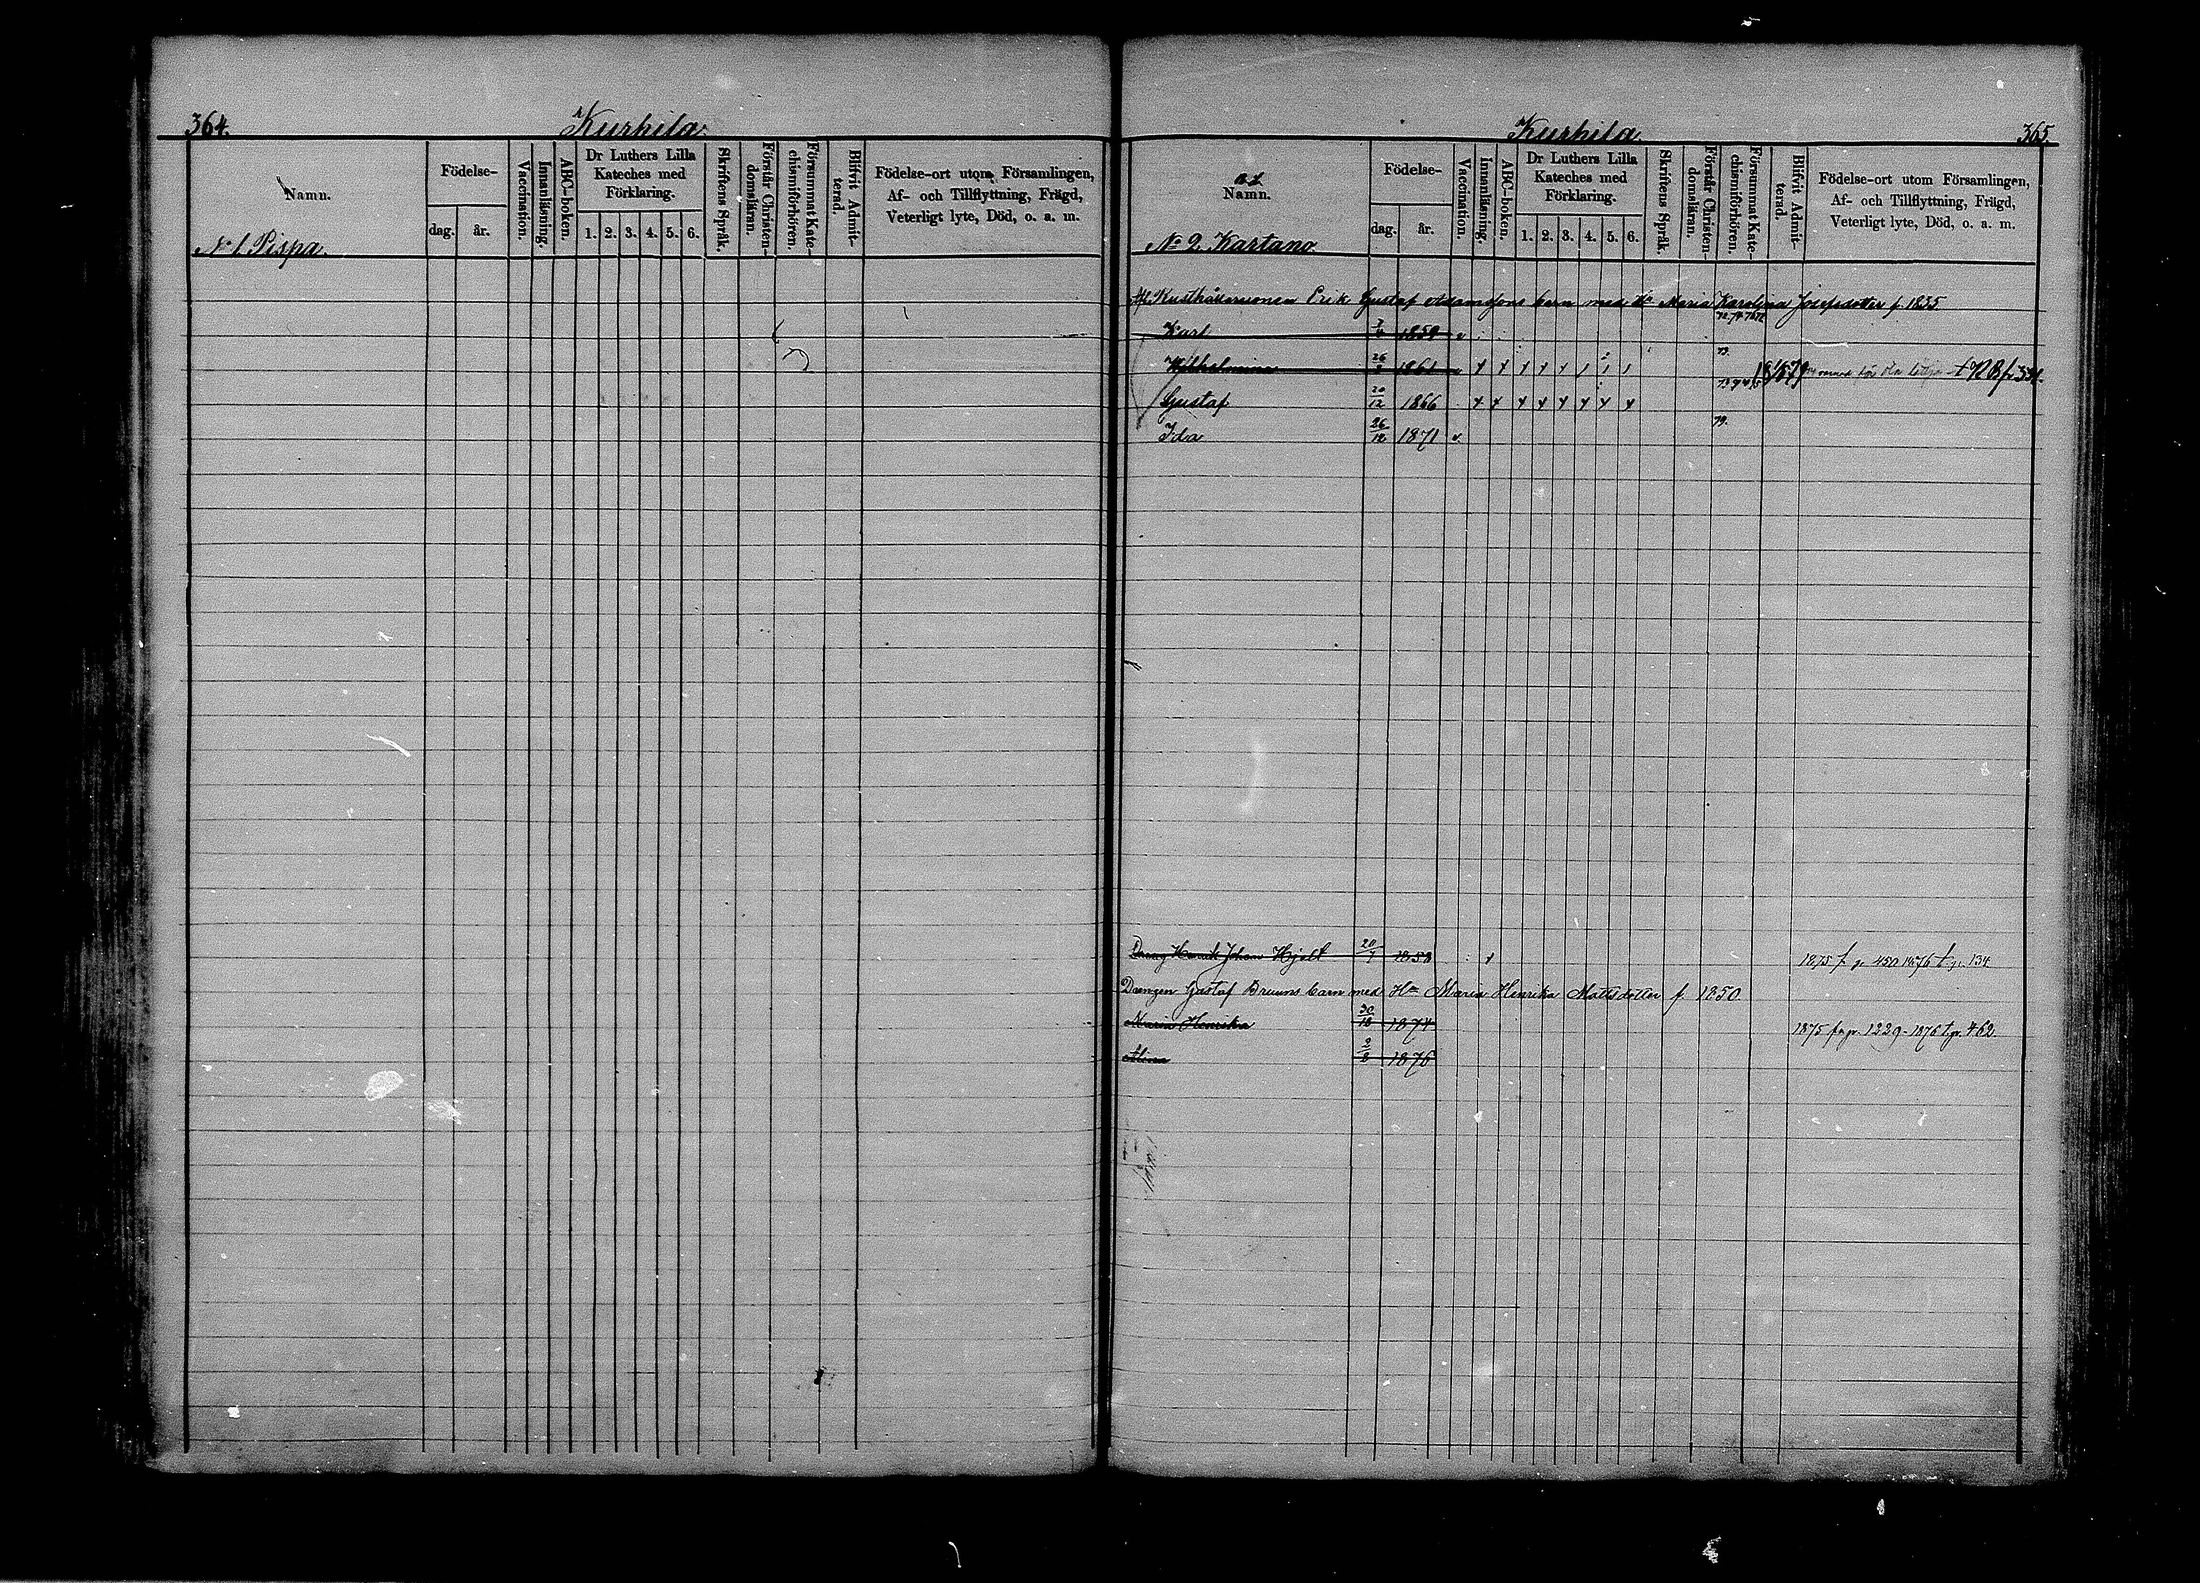 364.
Kurhila.
Namn.
Födelse-
dag. år.
Vaccination.
Innanläsning.
ABC-boken.
Dr Luthers Lilla Kateches med Förklaring.
1. 2. 3. 4. 5. 6.
Skriftens Språk.
Förstår Christen-domsläran.
Försummat Kate-chismiförhören.
Blifvit Admit-terad.
Födelse-ort utom Församlingen,
Af- och Tillflyttning, Frägd,
Veterligt lyte, Död, o. a. m.
No 1. Pispa.
Kurhila
365.
Namn.
Födelse-
dag. år.
Vaccination.
Innanläsning.
ABC-boken.
Dr Luthers Lilla Kateches med Förklaring.
1. 2. 3. 4. 5. 6.
Skriftens Språk.
Förstår Christen-domsläran.
Försummat Kate-chismiförhören.
Blifvit Admit-terad.
Födelse-ort utom Församlingen,
Af- och Tillflyttning, Frägd,
Veterligt lyte, Död, o. a. m.
No 2. Kartano
Rusthållaresonen Erik Gustaf Adamssons barn med Maria Karolina Josefsdotter f. 1835.
Karl 1859
Wilhelmina 1861
Gustaf 20/12 1866
Ida 26/12 1871
Dräng Henrik Johan Hjelt 20/7 1858 1875 f. p. 450 1876 t. p. 134
Drengen Gustaf Bruuns barn med Hu Maria Henrika Mattsdotter f. 1850
Maria Henrika 1874 1875 f. p. 1229 - 1876 t. p. 462.
Alina 1876